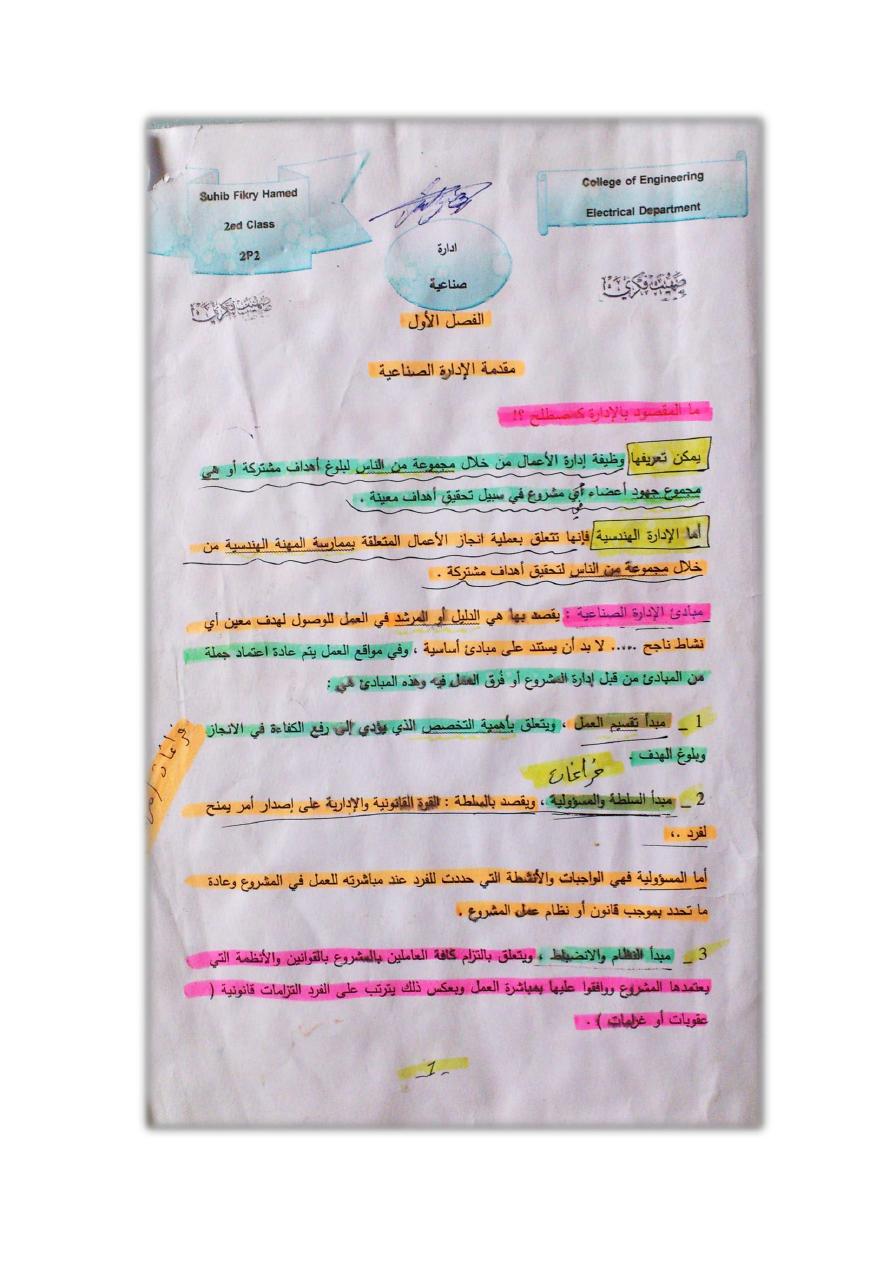 Suhib Fikry Hamed
2ed Class
2P2
College of Engineering
Electrical Department
ادارة
صناعية
صهيب فكري
صهيب فكري
الفصل الأول
مقدمة الإدارة الصناعية
ما المقصود بالإدارة كمصطلح ؟!
يمكن تعريفها وظيفة إدارة الأعمال من خلال مجموعة من الناس لبلوغ أهداف مشتركة أو هي
مجموع جهود أعضاء أي مشروع في سبيل تحقيق أهداف معينة .
أما الإدارة الهندسية فإنها تتعلق بعملية انجاز الأعمال المتعلقة بممارسة المهنة الهندسية من
خلال مجموعة من الناس لتحقيق أهداف مشتركة .
مبادئ الإدارة الصناعية : يقصد بها هي الدليل أو المرشد في العمل للوصول لهدف معين أي
نشاط ناجح ..... لا بد أن يستند على مبادئ أساسية ، وفي مواقع العمل يتم عادة اعتماد جملة
من المبادئ من قبل إدارة المشروع أو فُرق العمل فيه وهذه المبادئ هي :
1 _ مبدأ تقسيم العمل ، ويتعلق بأهمية التخصص الذي يؤدي إلى رفع الكفاءة في الانجاز
وبلوغ الهدف .
فراغات
2 _ مبدأ السلطة والمسؤولية ، ويقصد بالسلطة : القوة القانونية والإدارية على إصدار أمر يمنح
لفرد .،
أما المسؤولية فهي الواجبات والأنشطة التي حددت للفرد عند مباشرته للعمل في المشروع وعادة
ما تحدد بموجب قانون أو نظام عمل المشروع .
3 _ مبدأ النظام والانضباط ، ويتعلق بالتزام كافة العاملين بالمشروع بالقوانين والأنظمة التي
يعتمدها المشروع ووافقوا عليها بمباشرة العمل وبعكس ذلك يترتب على الفرد التزامات قانونية (
عقوبات أو غرامات ) .
فراغات
-1-